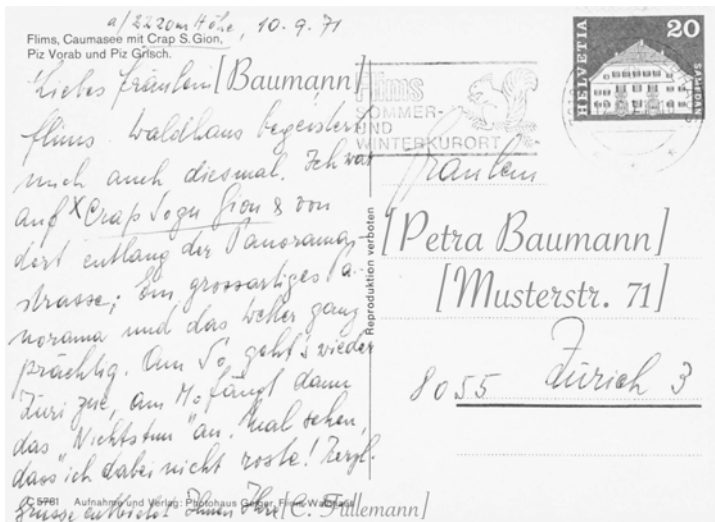 a/2220m Höhe, 10.9.71
Flims, Caumasee mit Crap S. Gion,
Piz Vorab und Piz Grisch.
Liebes Fräulein [Baumann]
Flims Waldhaus begeistert
mich auch diesmal. Ich war
auf x Crap Sogn Gion & von
dort entlang der Panorama-
strasse; Ein grossartiges Pa-
norama und das Wetter ganz
prächtig. Am So geht's wieder
Züri zue, am Mo fängt dann
das "Nichtstun" an. Mal sehen,
dass ich dabei nicht roste! Herzl.
C 5781 Aufnahme und Verlag: Photohaus Geiger, Flims-Waldhaus
Grüsse entbietet Ihnen Ihre [C. Füllemann]
Reproduktion verboten
Flims
SOMMER-
UND
WINTERKURORT
HELVETIA
20
SAMEDAN
Fräulein
[Petra Baumann]
[Musterstr. 71]
8055 Zürich 3